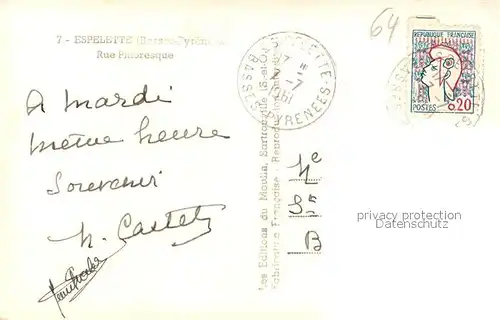 7 - ESPELETTE (Basses-Pyrénées)
Rue Pittoresque
64
RÉPUBLIQUE FRANÇAISE
POSTES 0,20
ESPELETTE
17 H
-7
1961
BASSES PYRENEES
A mardi
même heure
Souvenir
N. Castet
Les Editions du Moulin, Sartrouville (S.-et-O.)
Fabrication Française - Reproduction
privacy protection
Datenschutz